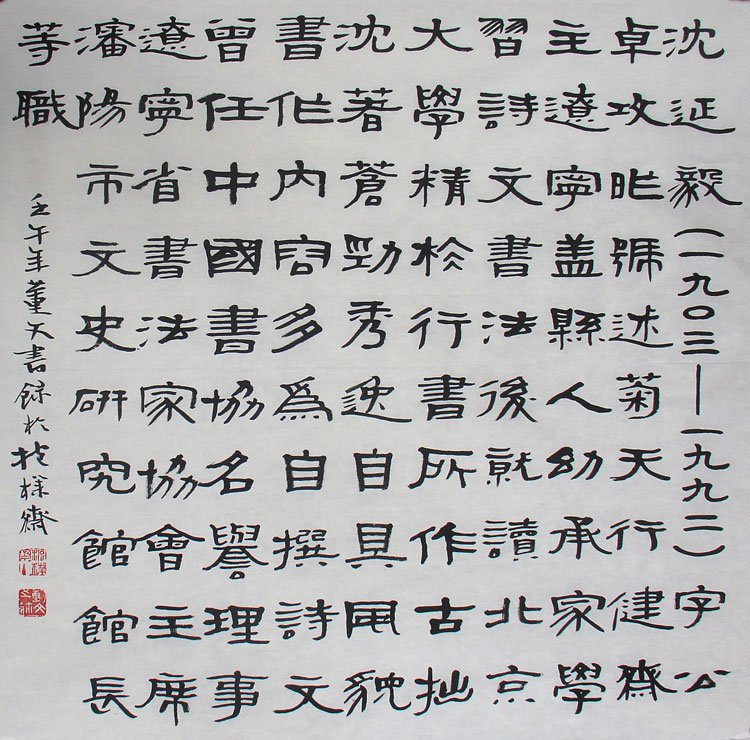 沈延毅(一九〇三—一九九二)字公
卓攻昨號述菊天行健齋
主遼寧盖縣人幼承家學
習詩文書法後就讀北京
大學精於行書所作古拙
沈著蒼勁秀逸自具風貌
書作内容多為自撰詩文
曾任中國書協名譽理事
遼寧省書法家協會主席
瀋陽市文史研究館館長
等職
壬午年董文書録於齋